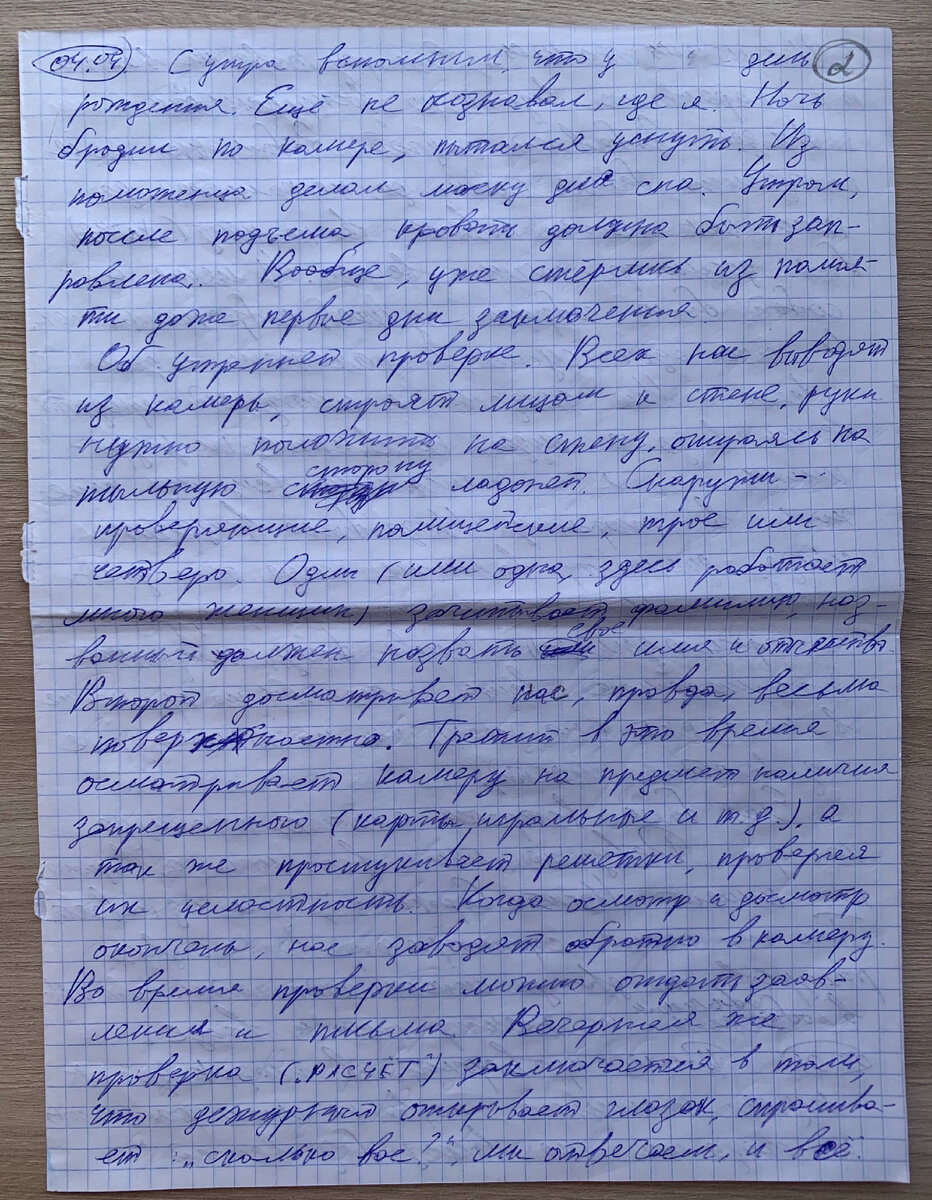 04.04. С утра вспомнил, что у " " день 2
рождения. Ещё не сознавал, где я. Ночь
бродил по камере, пытался уснуть. Из
полотенца делал маску для сна. Утром,
после подъёма, кровать должна быть зап-
равлена. Вообще, уже стёрлись из памя-
ти даже первые дни заключения.
Об утренней проверке. Всех нас выводят
из камеры, строят лицом к стене, руки
нужно положить на стену, опираясь на
тыльную сторону ладоней. Снаружи -
проверяющие, полицейские, трое или
четверо. Один (или одна, здесь работает
много женщин) зачитывает фамилии, наз-
ванный должен назвать своё имя и отчество.
Второй досматривает нас, правда, весьма
поверхностно. Третий в это время
осматривает камеру на предмет наличия
запрещенного (карты игральные и т.д.), а
так же простукивает решетки, проверяя
их целостность. Когда осмотр и досмотр
окончены, нас заводят обратно в камеру.
Во время проверки можно отдать заяв-
ления и письма Вечерняя же
проверка ("РАСЧЁТ") заключается в том,
что дежурный открывает глазок, спрашива-
ет: „сколько вас?", мы отвечаем, и всё.